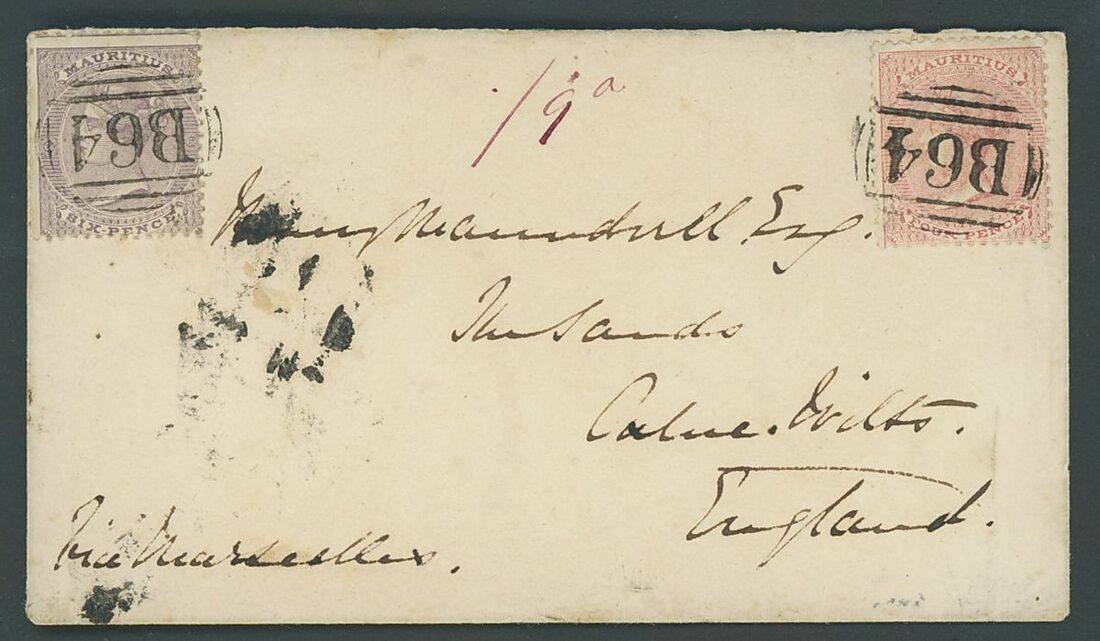 MAURITIUS
B64
SIX-PENCE
/9 a
MAURITIUS
B64
FOUR PENCE
Henry Maundrell Esq.
The Sands
Calne. Wilts.
England.
Via Marseilles.